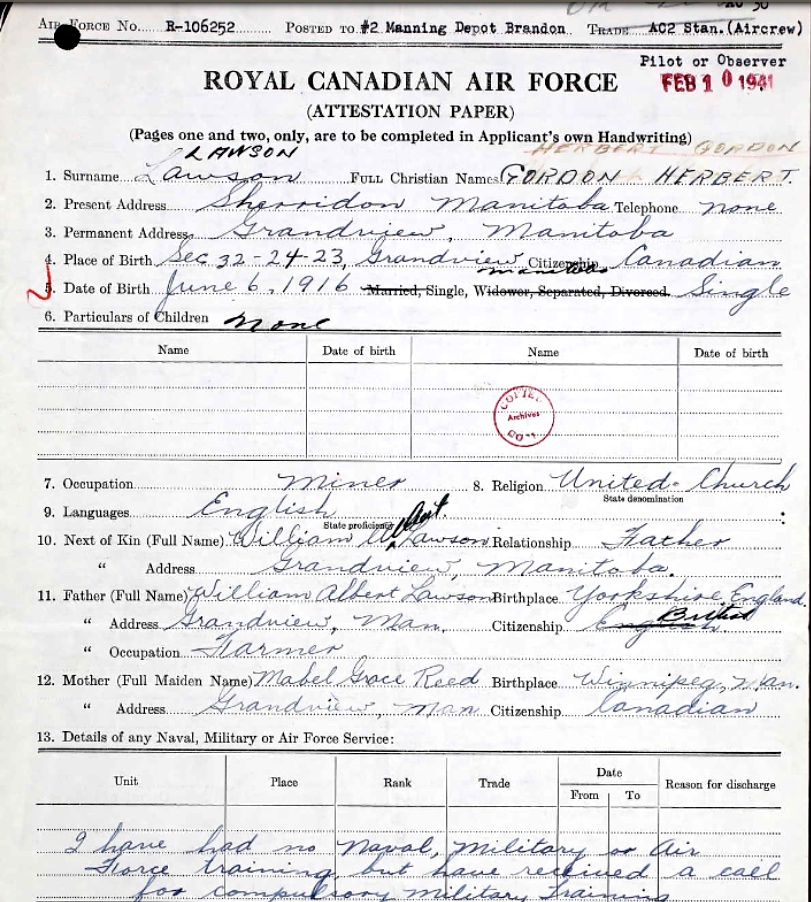 AIR FORCE NO. R-106252 POSTED TO #2 Manning Depot Brandon TRADE AC2 Stan.(Aircrew)
Pilot or Observer
ROYAL CANADIAN AIR FORCE FEB 10 1941
(ATTESTATION PAPER)
(Pages one and two, only, are to be completed in Applicant's own Handwriting)
LAWSON HERBERT GORDON
1. Surname Lawson FULL Christian Names GORDON HERBERT.
2. Present Address Sherridon Manitoba Telephone none
3. Permanent Address Grandview, Manitoba
4. Place of Birth Sec 32-24-23, Grandview Citizenship Canadian
manitoba
5. Date of Birth June 6, 1916 Married, Single, Widower, Separated, Divorced. Single
6. Particulars of Children none
Name Date of birth Name Date of birth
Archives
7. Occupation Miner 8. Religion United Church
State denomination
9. Languages English
State proficiency
10. Next of Kin (Full Name) William Lawson Relationship Father
" Address Grandview, Manitoba.
11. Father (Full Name) William Albert Lawson Birthplace Yorkshire England
British
" Address Grandview, Man, Citizenship English
" Occupation Farmer
12. Mother (Full Maiden Name) Mabel Grace Reed Birthplace Winnipeg, Man.
" Address Grandview, Man Citizenship Canadian
13. Details of any Naval, Military or Air Force Service:
Unit Place Rank Trade Date Reason for discharge
From To
I have had no Naval, Military or Air
Force training, but have received a call
for compulsory military training